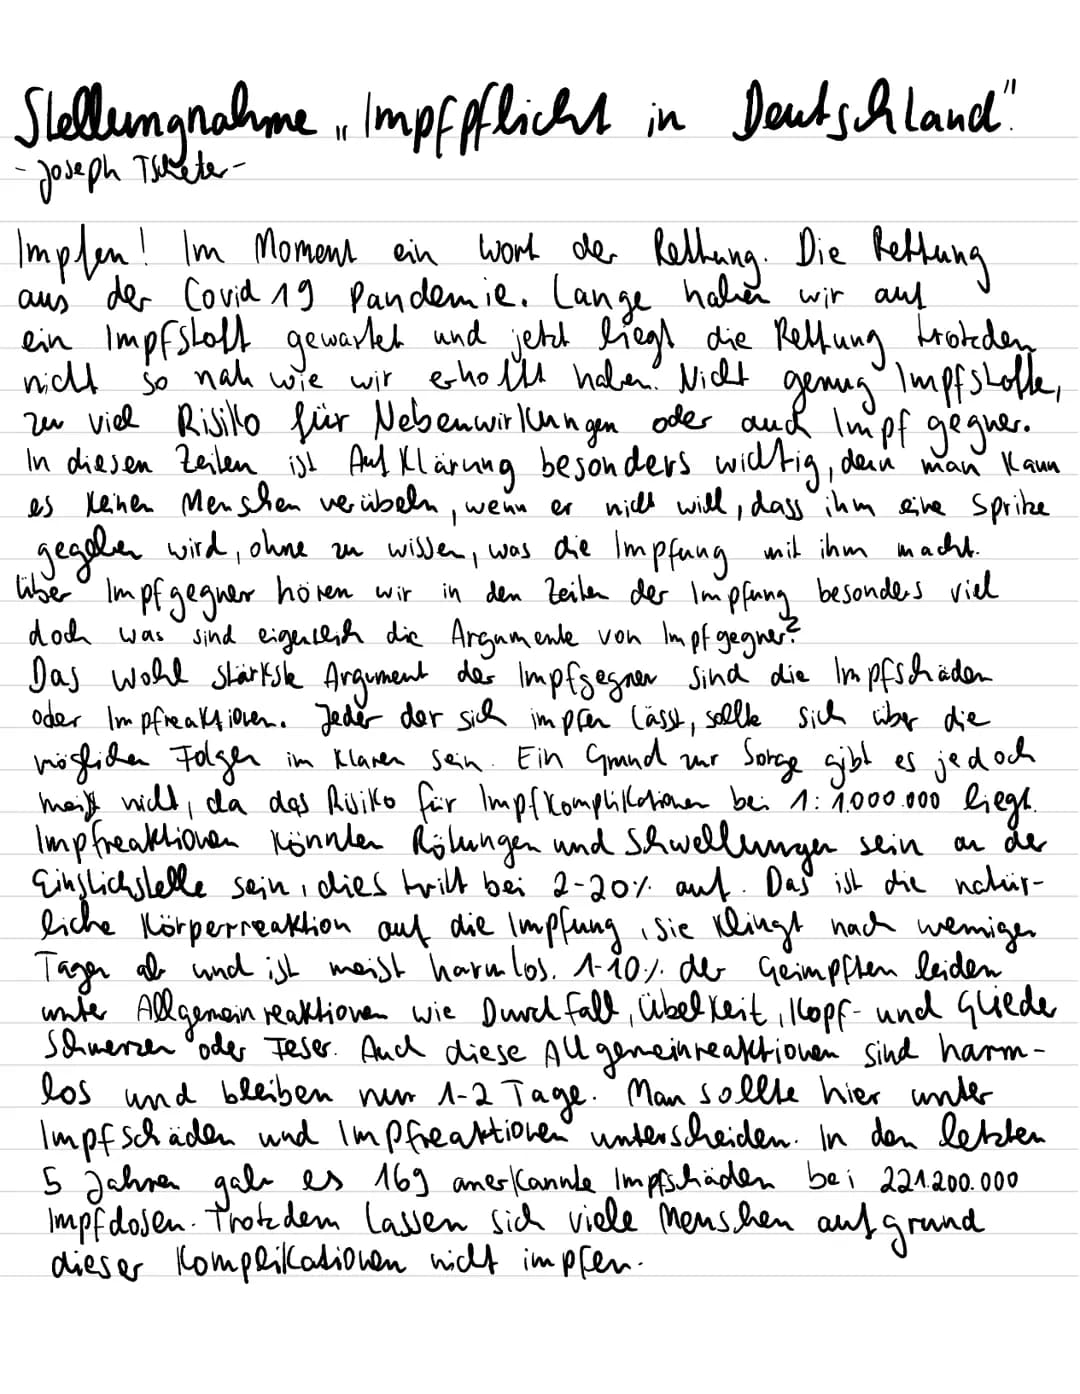 Stellungnahme „Impfpflicht in Deutschland"
- Joseph Tscheter -
Impfen! Im Moment ein Wort der Rettung. Die Rettung
aus der Covid 19 Pandemie. Lange haben wir auf
ein Impfstoff gewartet und jetzt liegt die Rettung trotzdem
nicht so nah wie wir erhofft haben. Nicht genug Impfstoffe,
zu viel Risiko für Nebenwirkungen oder auch Impfgegner.
In diesen Zeiten ist Aufklärung besonders wichtig, denn man kann
es keinen Menschen verübeln, wenn er nicht will, dass ihm eine Spritze
gegeben wird, ohne zu wissen, was die Impfung mit ihm macht.
Über Impfgegner hören wir in den Zeiten der Impfung besonders viel
doch was sind eigentlich die Argumente von Impfgegner?
Das wohl stärkste Argument der Impfgegner sind die Impfschäden
oder Impfreaktionen. Jeder der sich impfen lässt, sollte sich über die
möglichen Folgen im klaren sein. Ein Grund zur Sorge gibt es jedoch
meist nicht, da das Risiko für Impfkomplikationen bei 1:1.000.000 liegt.
Impfreaktionen könnten Rötungen und Schwellungen sein an der
Einstichstelle sein, dies tritt bei 2-20% auf. Das ist die natür-
liche Körperreaktion auf die Impfung, sie klingt nach wenigen
Tagen ab und ist meist harmlos. 1-10% der Geimpften leiden
unter Allgemeinreaktionen wie Durchfall, Übelkeit, Kopf- und Gliede
Schmerzen oder Fieser. Auch diese Allgemeinreaktionen sind harm-
los und bleiben nur 1-2 Tage. Man sollte hier unter
Impfschäden und Impfreaktionen unterscheiden. In den letzten
5 Jahren gab es 169 anerkannte Impfschäden bei 221.200.000
Impfdosen. Trotzdem lassen sich viele Menschen aufgrund
dieser Komplikationen nicht impfen.